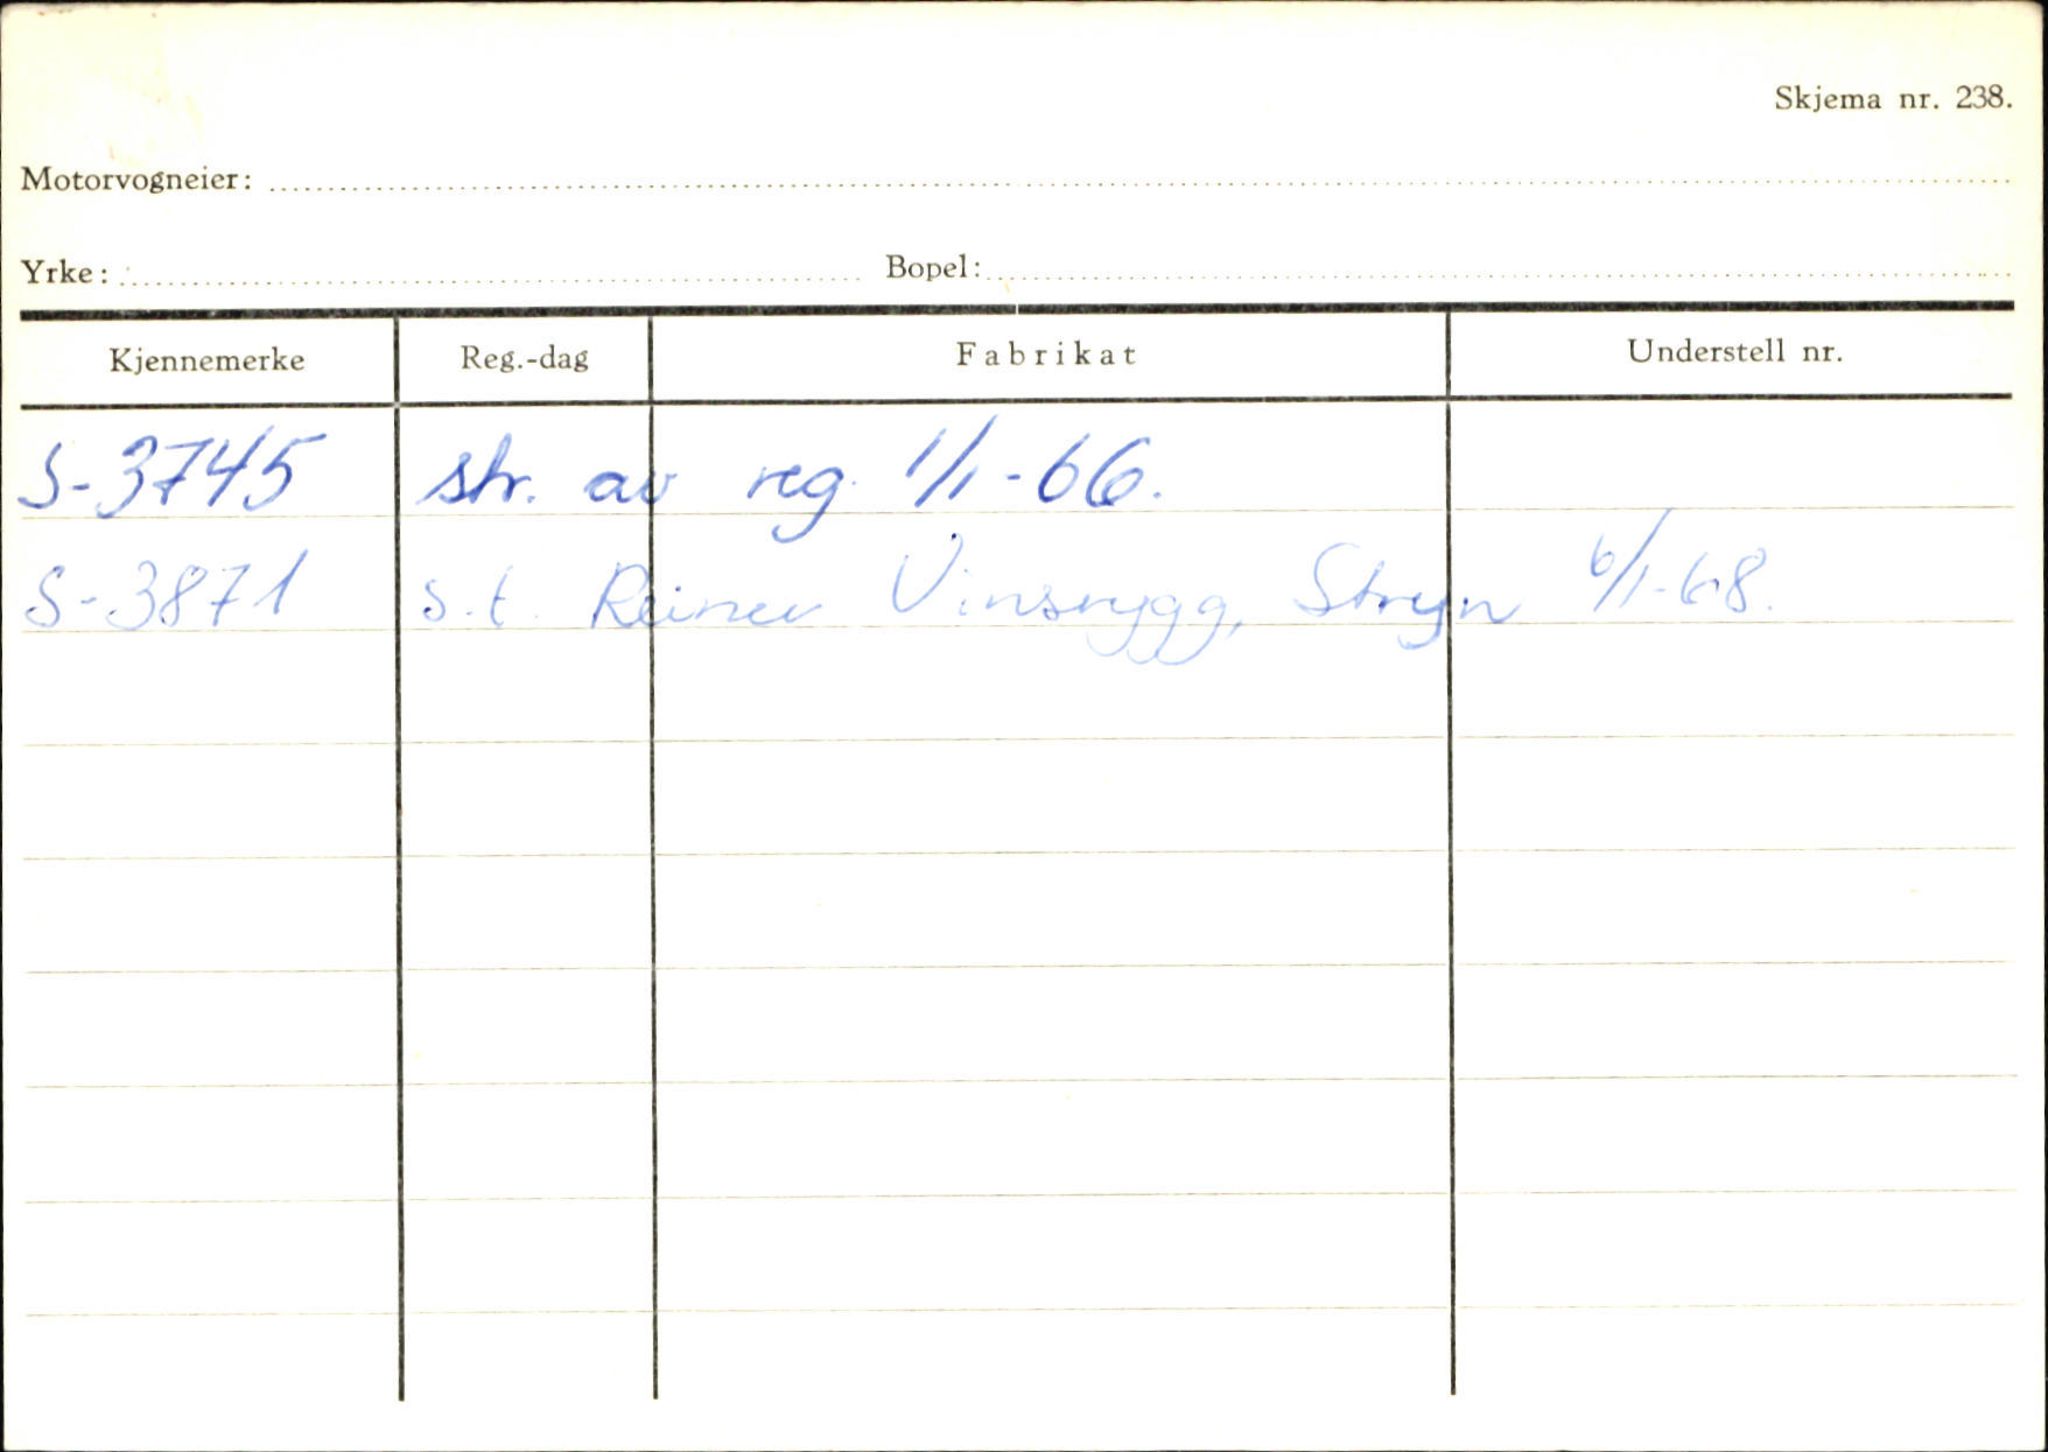 Skjema nr. 238.
Motorvogneier:
Yrke: Bopel:
Kjennemerke Reg.-dag Fabrikat Understell nr.
S-3745 str. av reg. 1/1-66.
S-3871 s.t. Reiner Vinsrygg, Stryn 6/1-68.